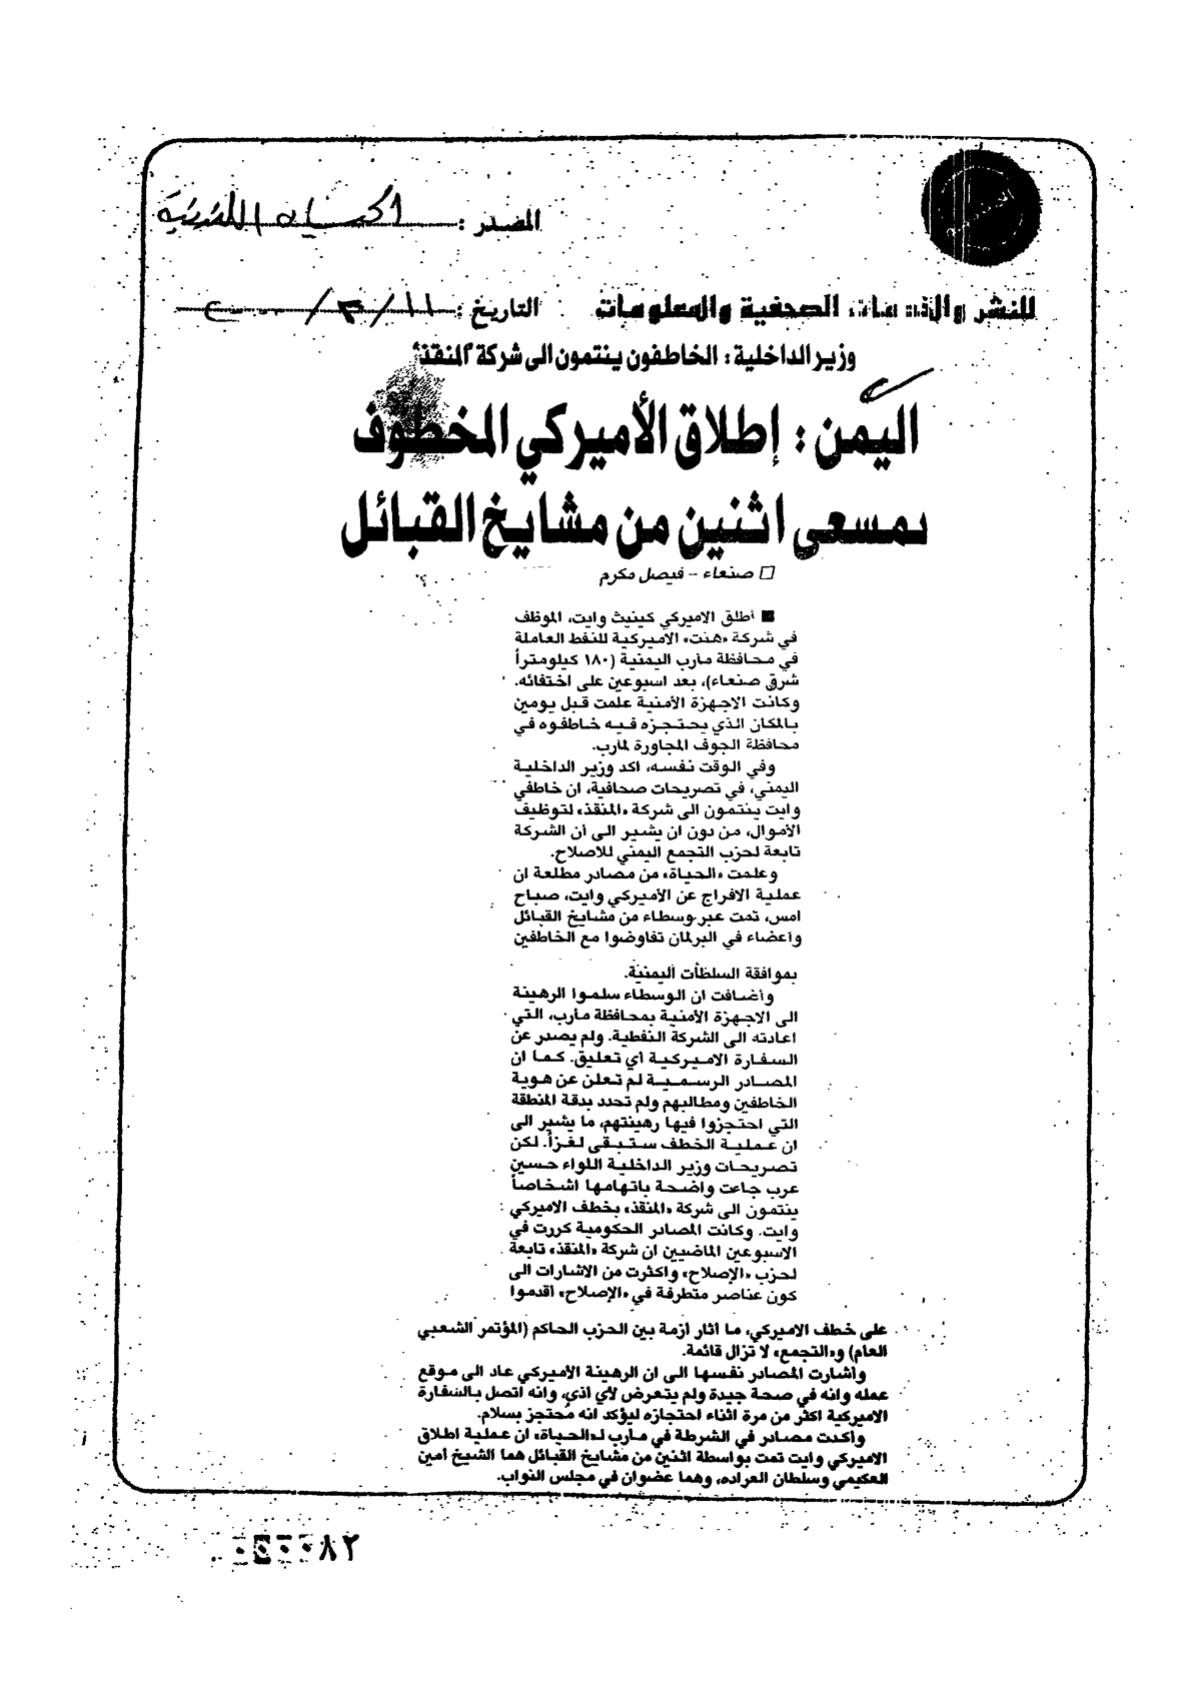 المصدر : الحياه اللندنية
للنشر والخدمات الصحفية والمعلومات
التاريخ : ١١/٣/٢٠٠٠
وزير الداخلية : الخاطفون ينتمون الى شركة "المنقذ"
اليمن : إطلاق الأميركي المخطوف
بمسعى اثنين من مشايخ القبائل
□ صنعاء - فيصل مكرم
■ أطلق الاميركي كينيث وايت، الموظف
في شركة «هنت» الاميركية للنفط العاملة
في محافظة مأرب اليمنية (١٨٠ كيلومتراً
شرق صنعاء)، بعد اسبوعين على اختفائه.
وكانت الاجهزة الأمنية علمت قبل يومين
بالمكان الذي يحتجزه فيه خاطفوه في
محافظة الجوف المجاورة لمأرب.
وفي الوقت نفسه، اكد وزير الداخلية
اليمني، في تصريحات صحافية، ان خاطفي
وايت ينتمون الى شركة «المنقذ» لتوظيف
الأموال، من دون ان يشير الى أن الشركة
تابعة لحزب التجمع اليمني للاصلاح.
وعلمت «الحياة» من مصادر مطلعة ان
عملية الافراج عن الأميركي وايت، صباح
امس، تمت عبر وسطاء من مشايخ القبائل
واعضاء في البرلمان تفاوضوا مع الخاطفين
بموافقة السلطات اليمنية.
وأضافت ان الوسطاء سلموا الرهينة
الى الاجهزة الأمنية بمحافظة مأرب، التي
اعادته الى الشركة النفطية. ولم يصدر عن
السفارة الاميركية أي تعليق. كما ان
المصادر الرسمية لم تعلن عن هوية
الخاطفين ومطالبهم ولم تحدد بدقة المنطقة
التي احتجزوا فيها رهينتهم، ما يشير الى
ان عملية الخطف ستبقى لغزاً. لكن
تصريحات وزير الداخلية اللواء حسين
عرب جاءت واضحة باتهامها اشخاصاً
ينتمون الى شركة «المنقذ» بخطف الاميركي
وايت. وكانت المصادر الحكومية كررت في
الاسبوعين الماضيين ان شركة «المنقذ» تابعة
لحزب «الإصلاح» واكثرت من الاشارات الى
كون عناصر متطرفة في «الإصلاح» اقدموا
على خطف الاميركي، ما أثار ازمة بين الحزب الحاكم (المؤتمر الشعبي
العام) و«التجمع» لا تزال قائمة.
وأشارت المصادر نفسها الى ان الرهينة الأميركي عاد الى موقع
عمله وانه في صحة جيدة ولم يتعرض لأي اذى، وانه اتصل بالسفارة
الاميركية اكثر من مرة اثناء احتجازه ليؤكد انه مُحتجز بسلام.
وأكدت مصادر في الشرطة في مأرب لـ«الحياة» ان عملية اطلاق
الاميركي وايت تمت بواسطة اثنين من مشايخ القبائل هما الشيخ امين
العكيمي وسلطان العراده، وهما عضوان في مجلس النواب.